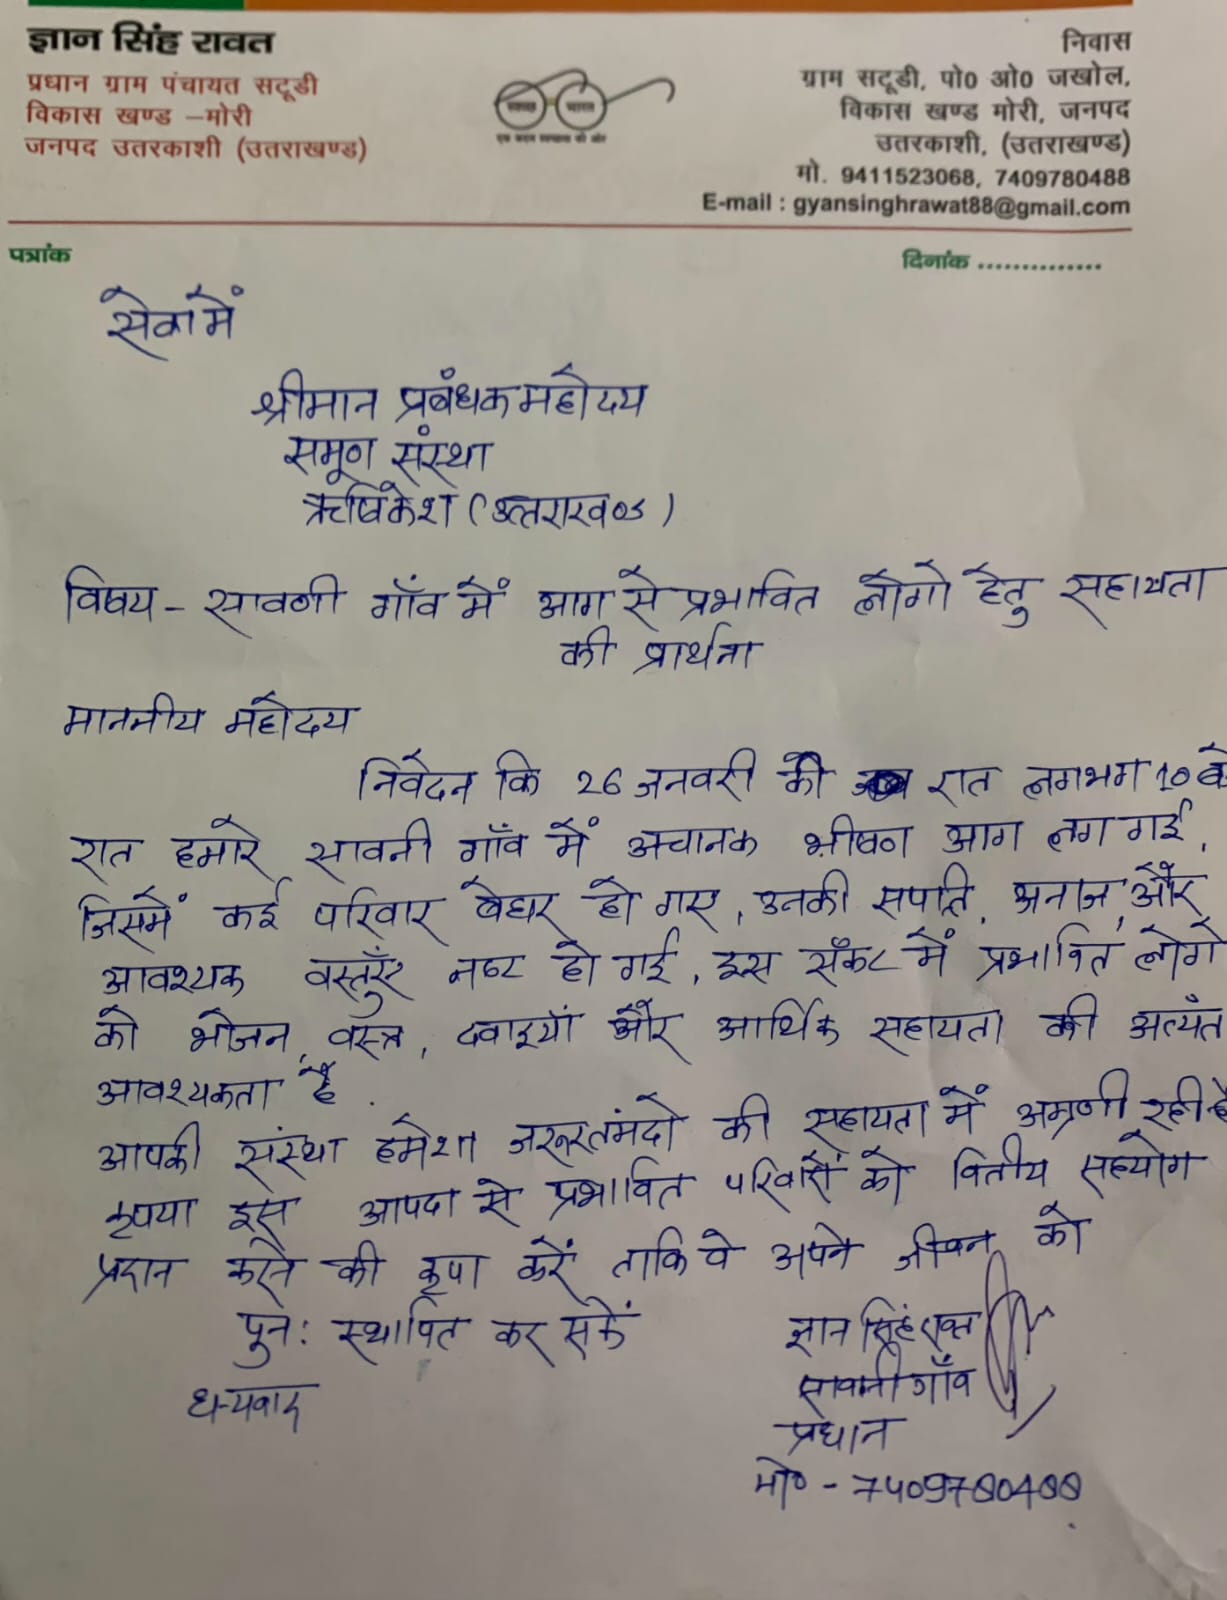 ज्ञान सिंह रावत
प्रधान ग्राम पंचायत सटूडी
विकास खण्ड –मोरी
जनपद उतरकाशी (उतराखण्ड)
स्वच्छ भारत
एक कदम स्वच्छता की ओर
निवास
ग्राम सटूडी, पो0 ओ0 जखोल,
विकास खण्ड मोरी, जनपद
उतरकाशी, (उतराखण्ड)
मो. 9411523068, 7409780488
E-mail : gyansinghrawat88@gmail.com
पत्रांक
दिनांक ..............
सेवा में
श्रीमान प्रबंधक महोदय
समूण संस्था
ऋषिकेश (उत्तराखण्ड)
विषय - सावणी गाँव में आग से प्रभावित लोगो हेतु सहायता
की प्रार्थना
माननीय महोदय
निवेदन कि 26 जनवरी की रात लगभग 10 बजे
रात हमारे सावनी गाँव में अचानक भीषण आग लग गई,
जिसमें कई परिवार बेघर हो गए, उनकी सपति, अनाज, और
आवश्यक वस्तुएँ नष्ट हो गई, इस संकट में प्रभावित लोगो
को भोजन, वस्त्र, दवाइयाँ और आर्थिक सहायता की अत्यँत
आवश्यकता है.
आपकी संस्था हमेशा जरूरतमंदो की सहायता में अग्रणी रही है
कृपया इस आपदा से प्रभावित परिवारों को वितीय सहयोग
प्रदान करने की कृपा करें ताकि वे अपने जीवन को
पुन: स्थापित कर सकें
धन्यवाद
ज्ञान सिंह रावत
सावनी गाँव
प्रधान
मो० - 7409780488